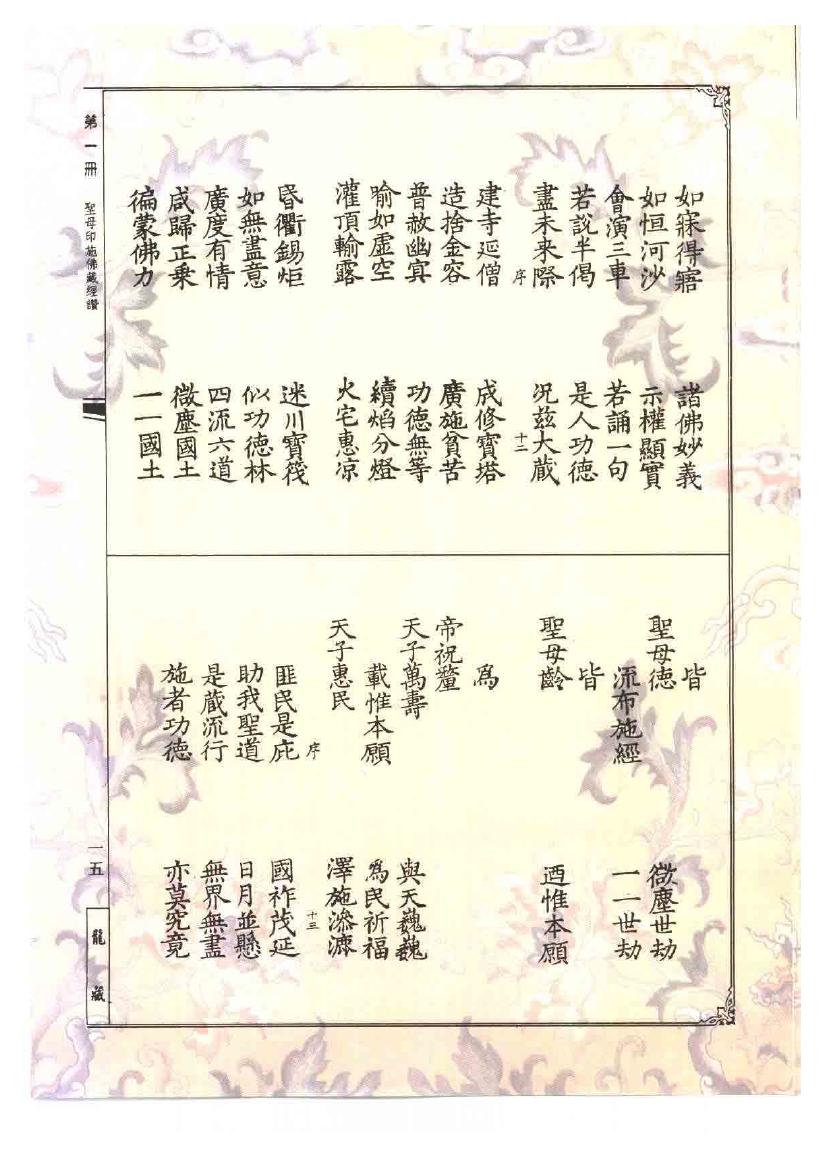 如寐得寤　諸佛妙義
如恒河沙　示權顯實
會演三車　若誦一句
若說半偈　是人功德
盡未来際　況茲大藏
序　十二
建寺延僧　成修寶塔
造捨金容　廣施貧苦
普赦幽冥　功德無等
喻如虛空　續焰分燈
灌頂輸露　火宅惠凉
昏衢錫炬　迷川寶筏
如無盡意　似功德林
廣度有情　四流六道
咸歸正乗　微塵國土
徧蒙佛力　一一國土
皆
聖母德　微塵世劫
流布施經　一一世劫
皆
聖母齡　迺惟本願
為
帝祝釐
天子萬壽　與天巍巍
載惟本願　為民祈福
天子惠民　澤施滲漉
序　十三
匪民是庇　國祚茂延
助我聖道　日月並懸
是藏流行　無界無盡
施者功德　亦莫究竟
第一冊　聖母印施佛藏經讚　一五　龍藏